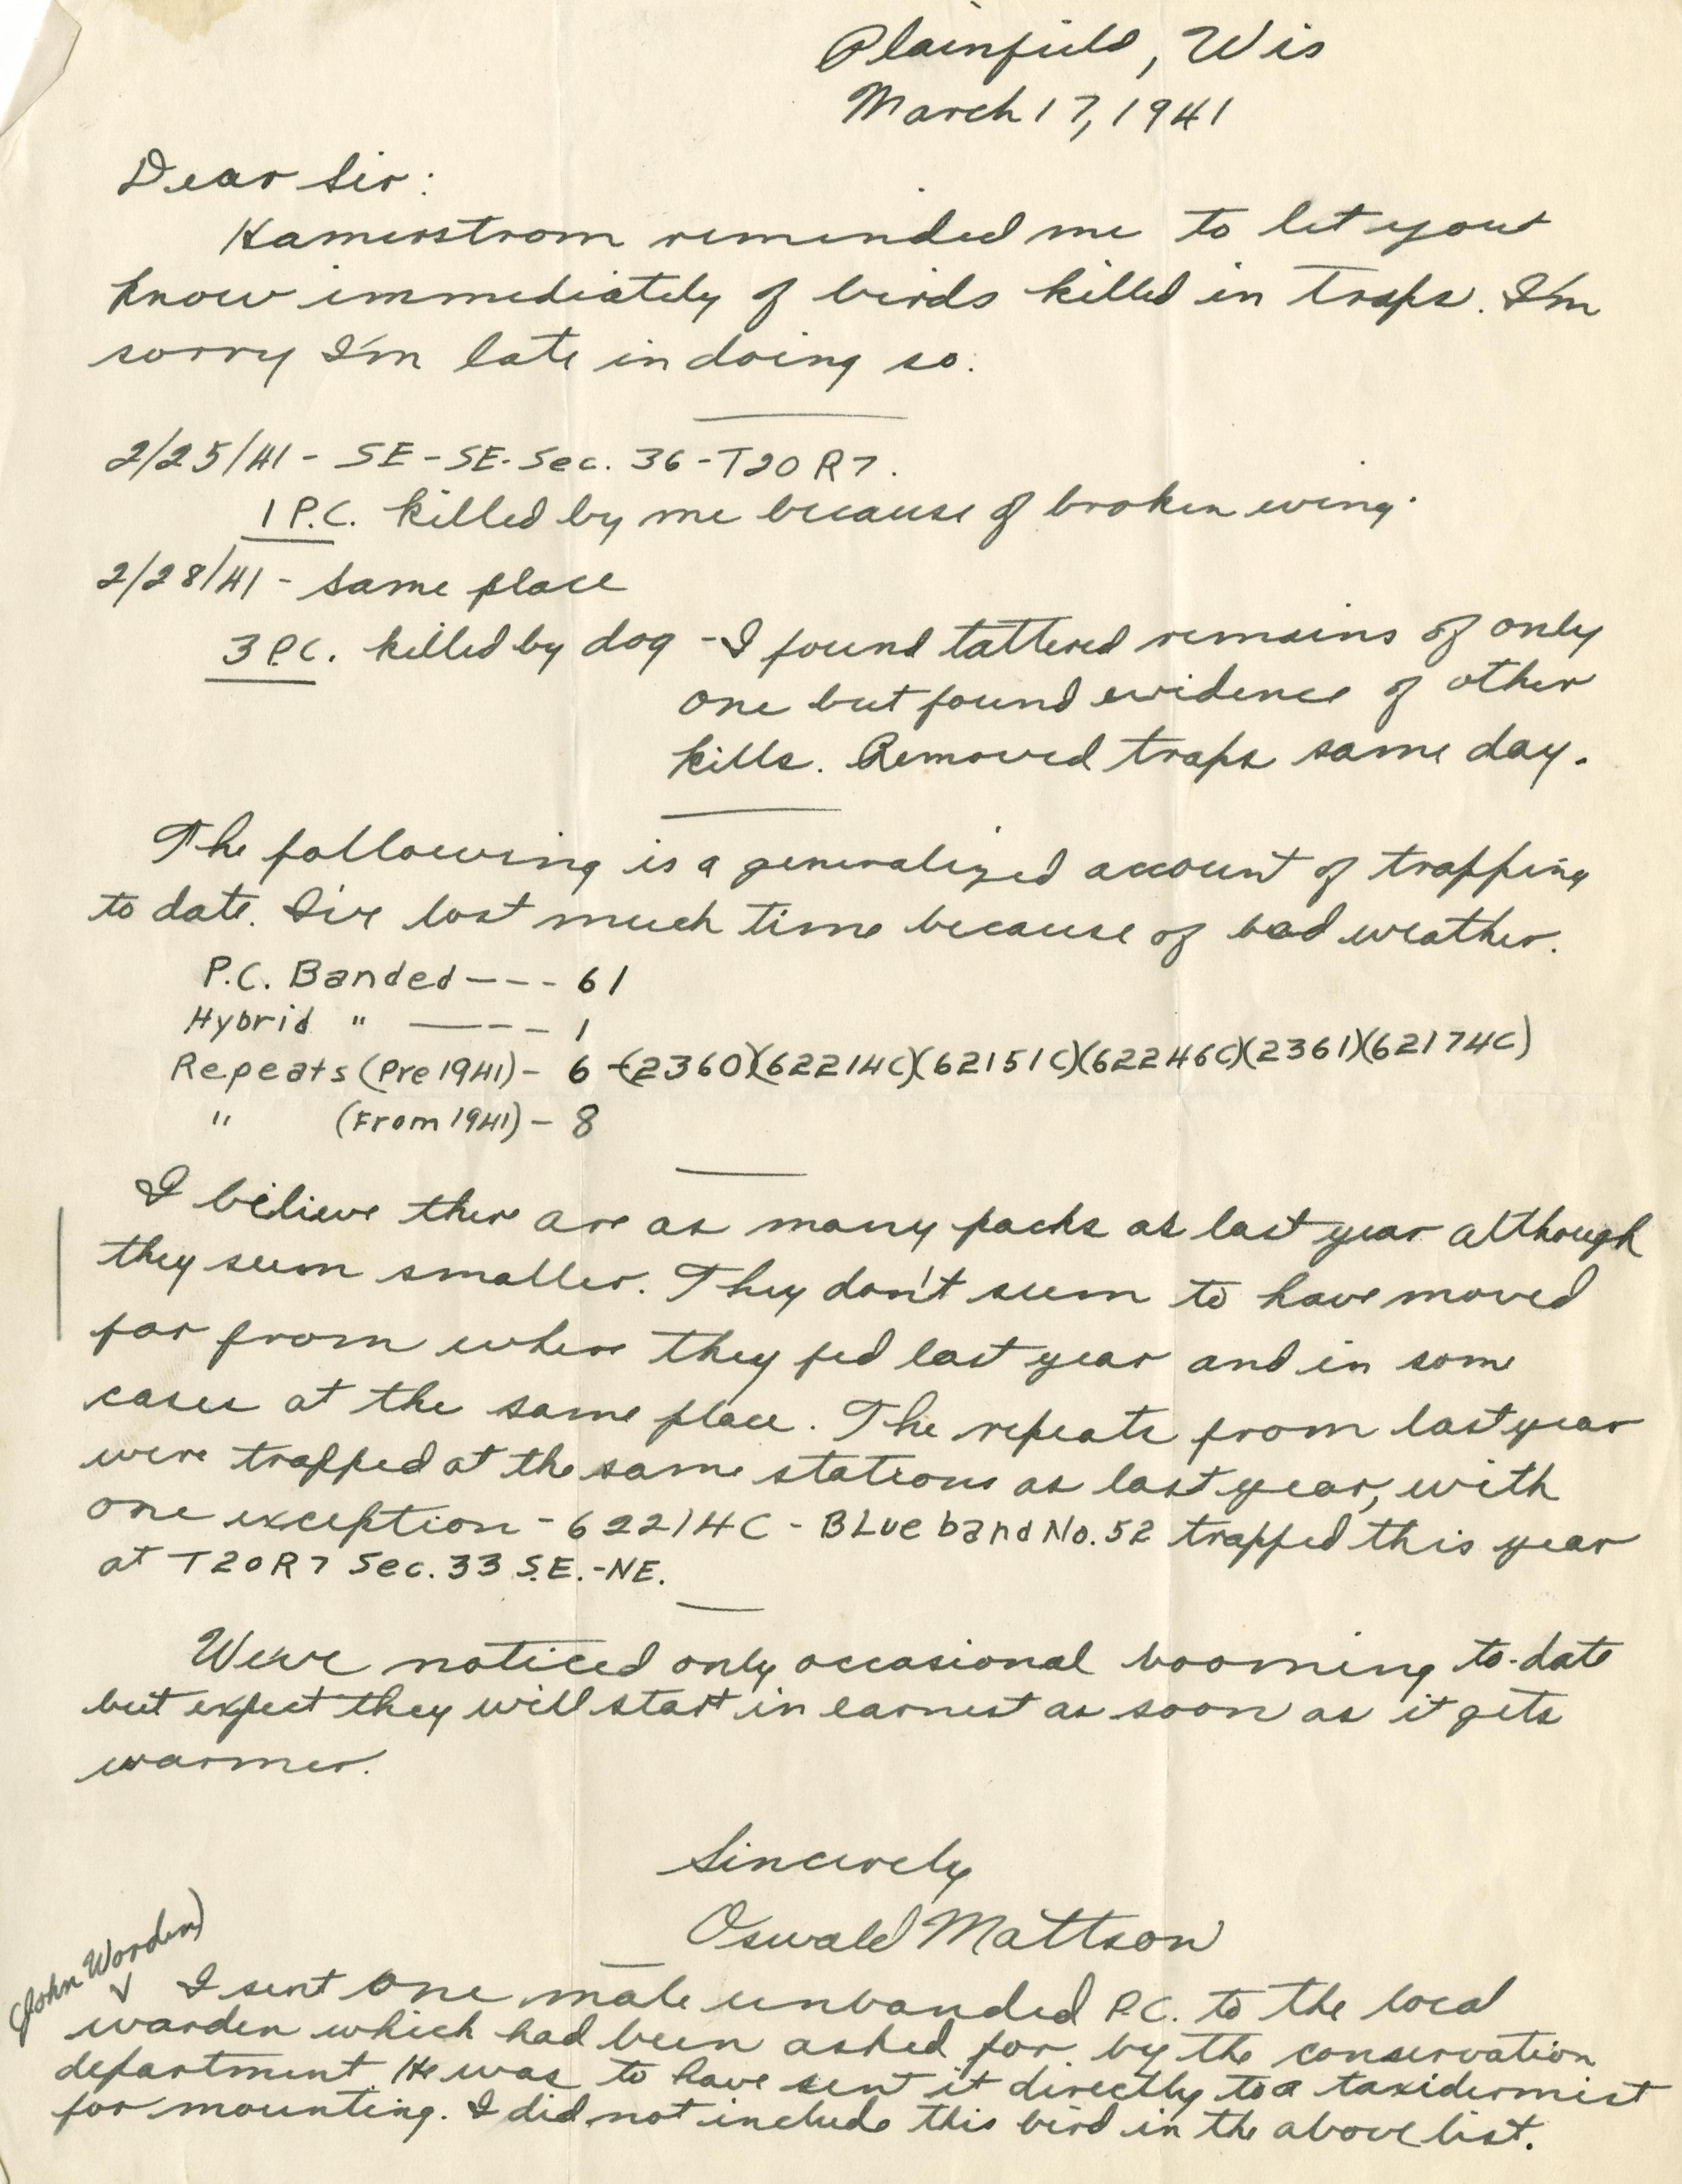 Plainfield, Wis
March 17, 1941
Dear Sir:
Hamerstrom reminded me to let you
know immediately of birds killed in traps. I'm
sorry I'm late in doing so.
2/25/41 - SE-SE-Sec. 36-T20 R7.
1 P.C. killed by me because of broken wing.
2/28/41 - Same place
3 P.C. killed by dog - I found tattered remains of only
one but found evidence of other
kills. Removed traps same day.
The following is a generalized account of trapping
to date. I've lost much time because of bad weather.
P.C. Banded --- 61
Hybrid " ---- 1
Repeats (Pre 1941) - 6 - (2360)(62214C)(62151C)(62246C)(2361)(62174C)
" (From 1941) - 8
I believe there are as many packs as last year although
they seem smaller. They don't seem to have moved
far from where they fed last year and in some
cases at the same place. The repeats from last year
were trapped at the same stations as last year, with
one exception - 62214C - Blue band No. 52 trapped this year
at T20R7 Sec. 33 S.E.-NE.
We've noticed only occasional booming to-date
but expect they will start in earnest as soon as it gets
warmer.
Sincerely
Oswald Mattson
(John Worden)
I sent one male unbanded P.C. to the local
warden which had been asked for by the conservation
department. He was to have sent it directly to a taxidermist
for mounting. I did not include this bird in the above list.